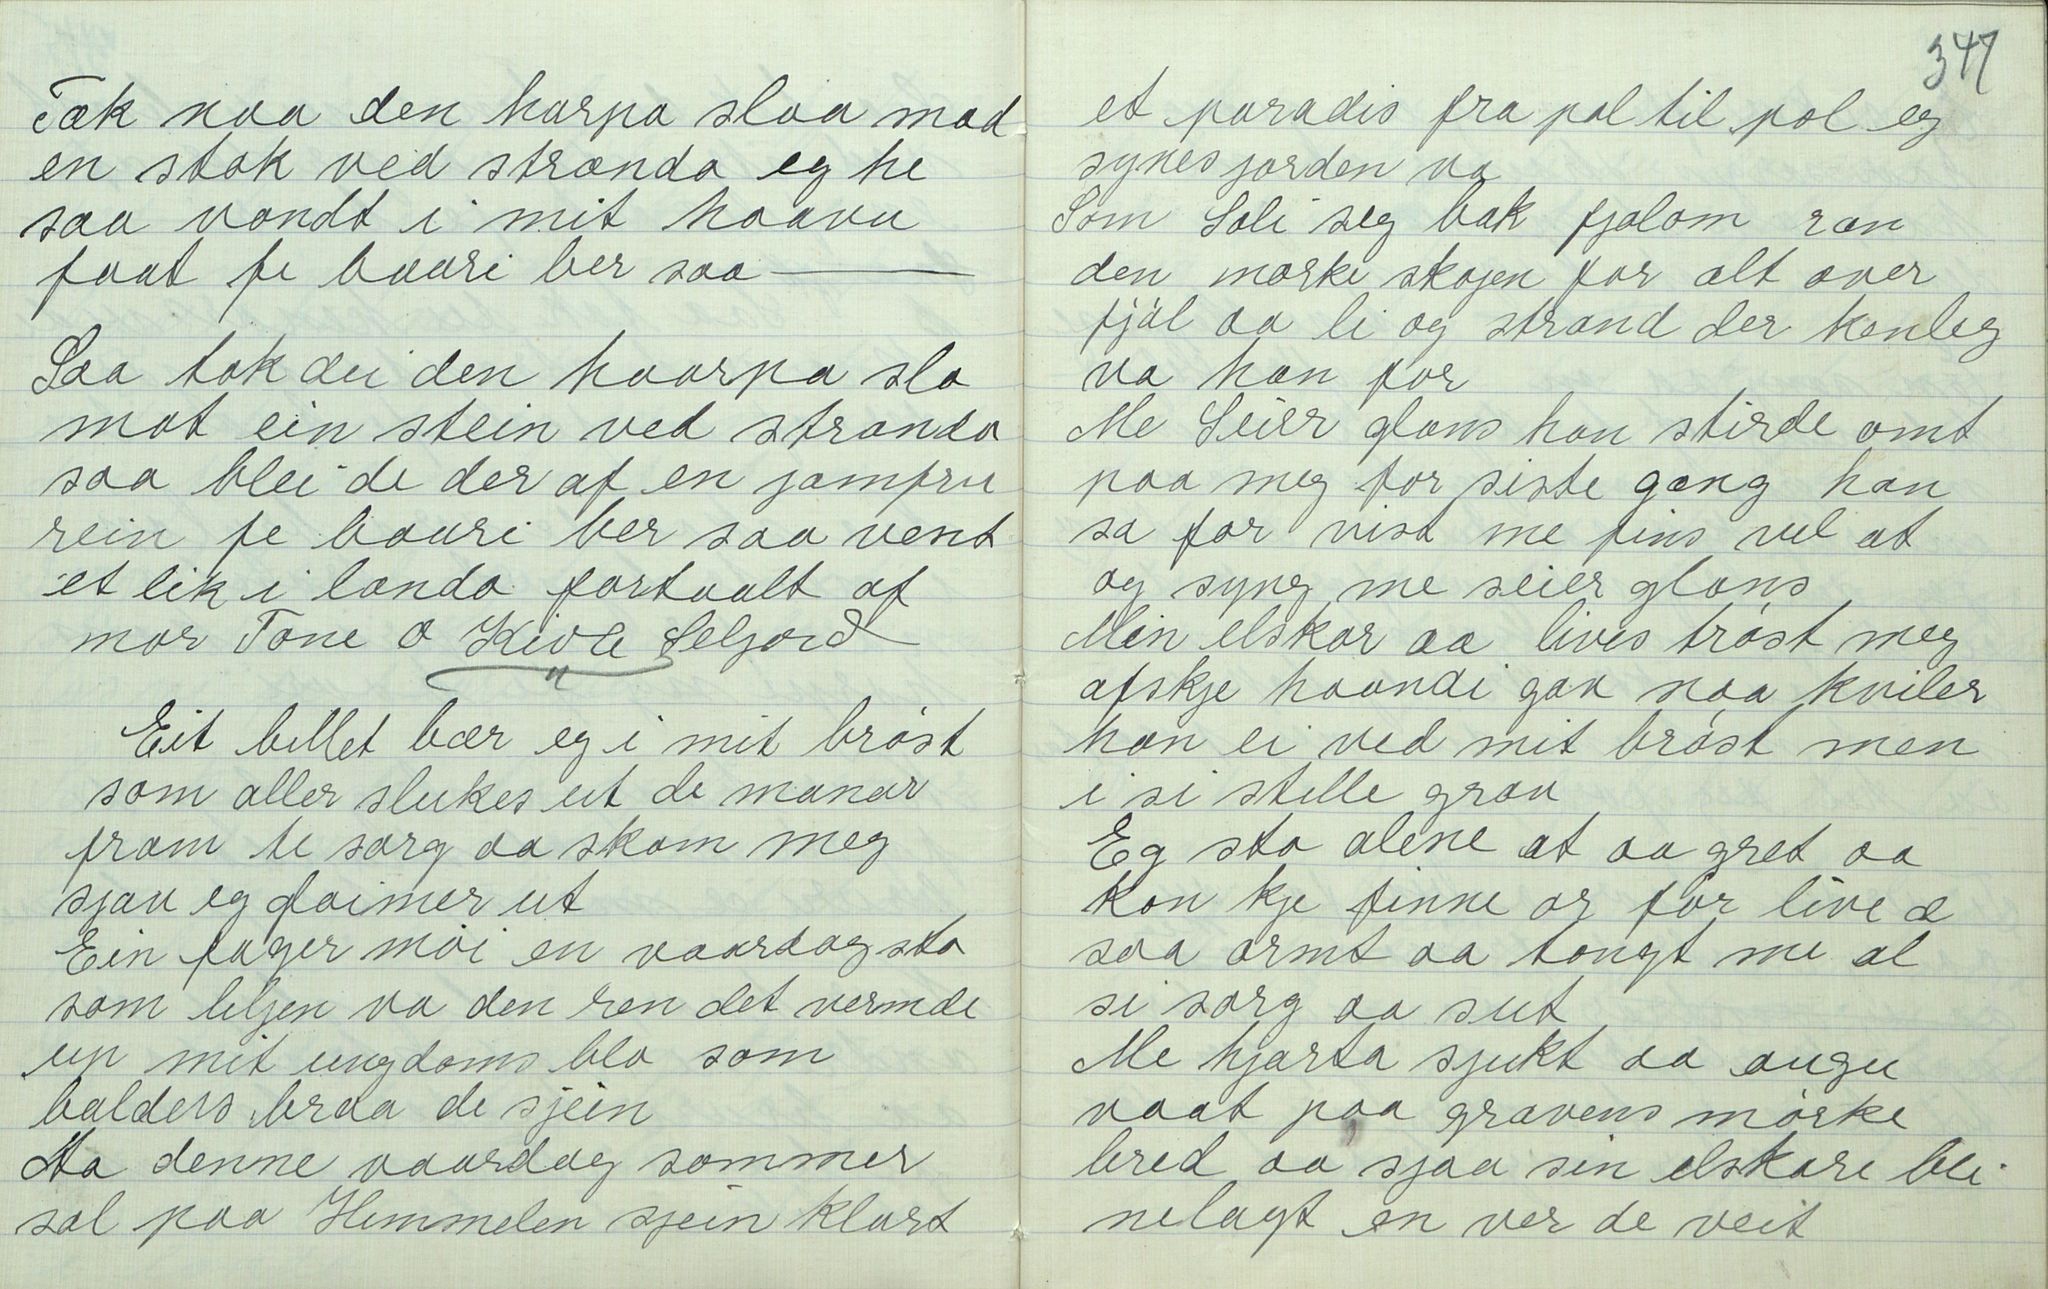 Tæk naa den harpa slaa mod
en stok ved stranda eg he
saa vondt i mit haavu
faat fe baari ber saa
Saa tok dei den haarpa slo
mot ein stein ved stranda
saa blei de der af en jomfru
rein fe baari ber saa vent
et lik i landa fortaalt af
mor Tone O Kivle Seljord
Eit billet bær eg i mit bröst
som aller slukes ut de manar
fram te sorg aa skam meg
sjav eg faimer ut
Ein fager möi en vaardag sto
som liljen va den ren det vermde
up mit ungdoms blo som
balders braa de sjein
Aa denne vaardag sommer
sol paa Himmelen sjein klart
347
et paradis fra pol til pol eg
synes jorden va
Som Soli seg bak fjölom ran
den mørke skogen for alt over
fjöl aa li og strand der kenleg
va han for
Me Seier glans han stirde omt
paa meg for siste gang han
sa for vist me fins vel at
og syng me seier glans
Min elskar aa lives tröst meg
afskje haandi gav naa kviler
han ei ved mit bröst men
i si stille grav
Eg sto alene at aa gret aa
kon kje finne or for live æ
saa armt aa tongt me al
si sorg aa sut
Me hjarta sjukt aa augu
vaat paa gravens mörke
bred aa sjaa sin elskare bli
nelagt en ver de veit